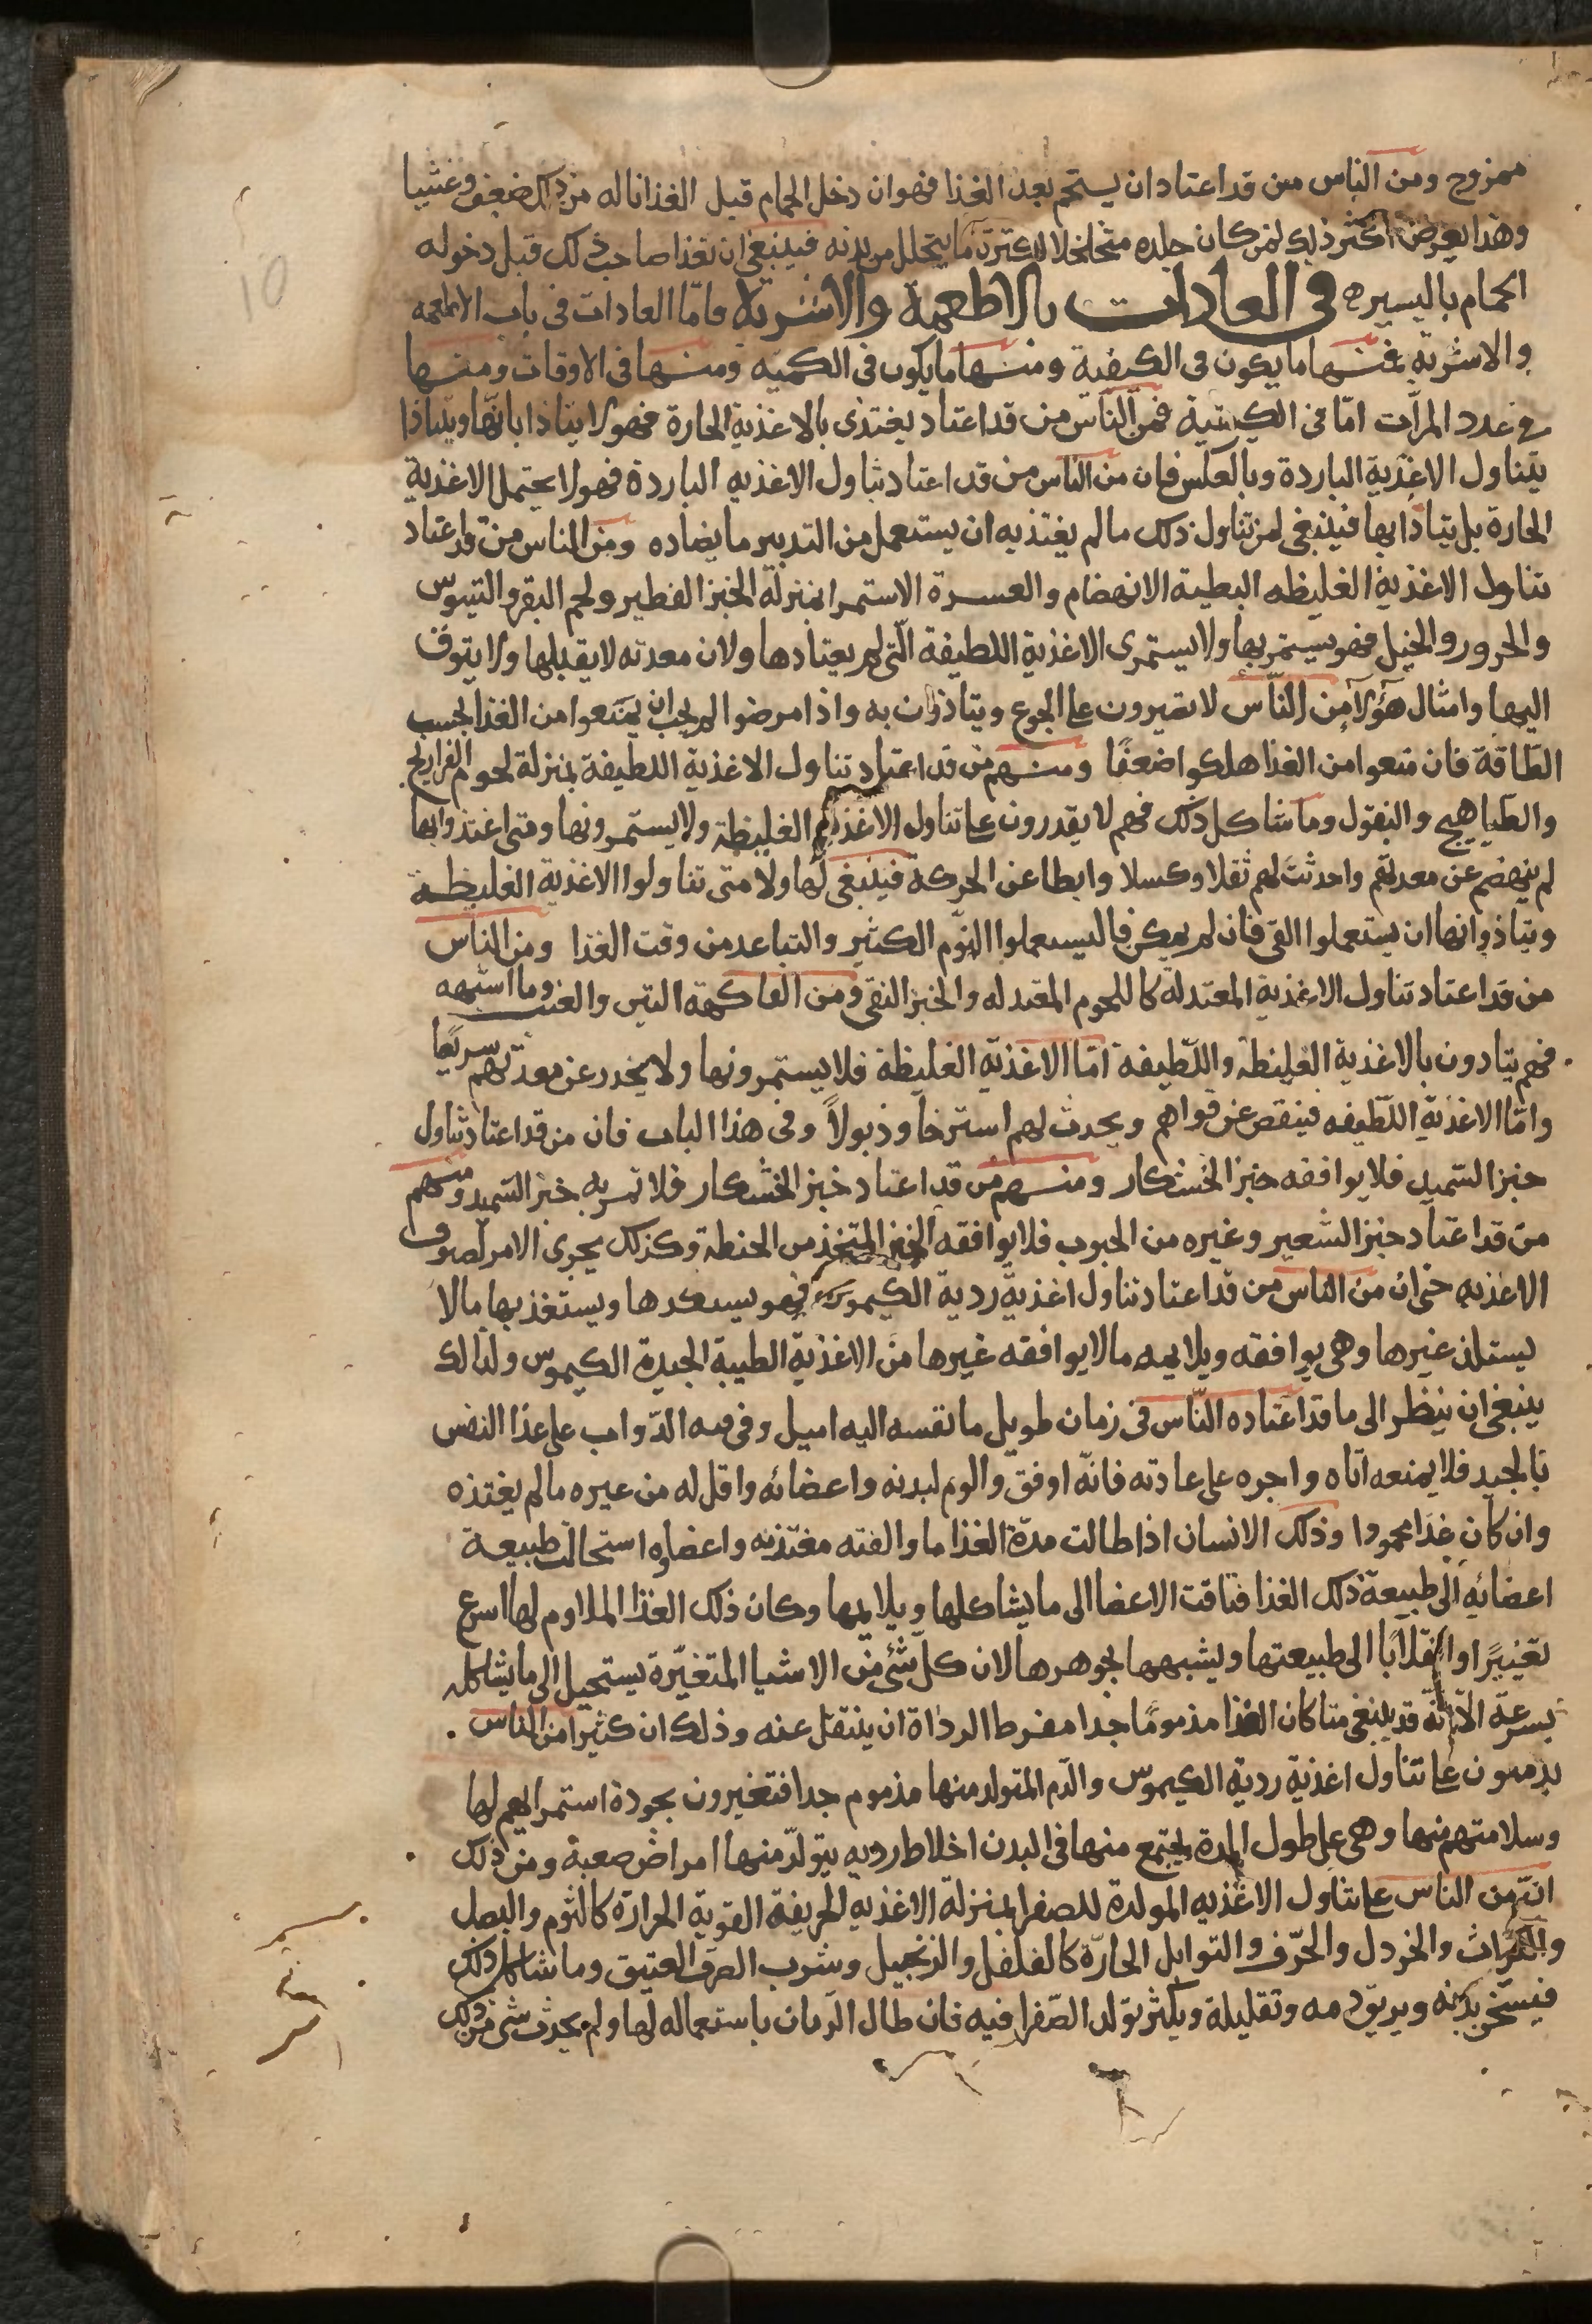 ممزوج ومن الناس من قد اعتاد ان يستحم بعد الغذا فهو ان دخل الحمام قبل الغذا ناله من ذلك ضعف وغشيا
وهذا يعرض اكثر ذلك لمن كان جلده متخلخلا لكثرة ما يتحلل من بدنه فينبغي ان تغذا صاحب ذلك قبل دخوله
الحمام باليسير ه في العادات بالاطعمة والاشربة فاما العادات في باب الاطعمه
والاشربة فمنها ما يكون في الكيفية ومنها ما يكون في الكميه ومنها في الاوقات ومنها
في عدد المرات اما في الكيفية فمن الناس من قد اعتاد يغتذى بالاغذية الحارة فهو لا يتاذا باتها ويتاذا
بتناول الاغذية الباردة وبالعكس فان من الناس من قد اعتاد تناول الاغذيه الباردة فهو لا يحتمل الاغذية
الحارة بل يتاذا بها فينبغي لمن تناول ذلك ما لم يغتذيه ان يستعمل من التدبير ما يضاده ومن الناس من قد اعتاد
تناول الاغذية الغليظه البطية الانهضام والعسرة الاستمرا بمنزلة الخبز الفطير ولحم البقر والتيوس
والجزور والخيل فهو يستمربها ولا يستمرى الاغذية اللطيفة التى لم يعتادها ولان معدته لا يقبلها ولا يتوق
اليها وامثال هؤلآ من الناس لا تصبرون على الجوع ويتاذون به واذا مرضوا لم يجب ان يمنعوا من الغذا بحسب
الطاقة فان منعوا من الغذا هلكوا ضعفا ومنهم من قد اعتاد تناول الاغذية اللطيفة بمنزلة لحوم الفراريج
والطياهيج والبقول وما شاكل ذلك فهم لا يقدرون على تناول الاغذية الغليظة ولا يستمرونها ومتى اغتذوا بها
لم ينهضم عن معدتهم واحدثت لهم ثقلا وكسلا وابطا عن الحركة فينبغى لهاولا متى تناولوا الاغذية الغليظة
ويتاذوا بها ان يستعملوا القى فان لم يمكن فاليستعملوا النوم الكثير والتباعد من وقت الغذا ومن الناس
من قد اعتاد تناول الاغذية المعتدلة كاللحوم المعتدله والخبز النقى ومن الفاكهة التين والعنب وما اشبهه
فهم يتادون بالاغذية الغليظة واللطيفة اما الاغذية الغليظة فلا يستمرونها ولا ينحدر عن معدتهم سريعا
واما الاغذية اللطيفه فينقص عن قواهم ويحدث لهم استرخا وذبولا وفى هذا الباب فان من قد اعتاد تناول
خبز السميد فلا يوافقه خبز الخشكار ومنهم من قد اعتاد خبز الخشكار فلا تمر به خبز السميد ومنهم
من قد اعتاد خبز الشعير وغيره من الحبوب فلا يوافقه الخبز المتخذ من الحنطة وكذلك يجرى الامر لصنوف
الاغذيه حتى ان من الناس من قد اعتاد تناول اغذية ردية الكيموس فهو يستلذها ويستغذ بها ما لا
يستلذ غيرها وهى يوافقه ويلايمه ما لا يوافقه غيرها من الاغذية الطيبة الجيدة الكيموس ولذالك
ينبغى ان ينظر الى ما قد اعتاده الناس فى زمان طويل ما نفسه اليه اميل وفى الدواب على غذا النفس
بالجيد فلا يمنعه اياه واجره على عادته فانه اوفق والوم لبدنه واعضائه واقل له من غيره ما لم يغتذه
وان كان غذا محمودا وذلك الانسان اذا طالت مدة الغذا ما والفته مغتذيه واعضاوه استحالت طبيعة
اعضائه الى طبيعة ذلك الغذا فتاقت الاعضا الى ما يشاكلها ويلايمها وكان ذلك الغذا الملاوم لها اسرع
تغييرا وانقلابا الى طبيعتها ويشبهها بجوهرها لان كل شئ من الاشيا المتغيرة يستحيل الى ما يشاكله
بسرعة الا انه قد ينبغى متا كان الغذا مذموما جدا مفرط الرداة ان ينتقل عنه وذلك ان كثيرا من الناس
يدمنون على تناول اغذية ردية الكيموس والدم المتولد منها مذموم جدا فتغيرون بجودة استمرايهم لها
وسلامتهم منها وهى على طول المدة يجتمع منها فى البدن اخلاط رديه يتولد منها امراض صعبة ومن ذلك
ان من الناس على تناول الاغذيه المولدة للصفرا بمنزلة الاغذيه الحريفة القوية الحرارة كالثوم والبصل
والكراث والخردل والحرف والتوابل الحارة كالفلفل والزنجبيل وشرب الصرف العتيق وما شاكل ذلك
فيسخن بدنه ويريق دمه وتقليلة ويكثر تولد الصفرا فيه فان طال الزمان باستعماله لها ولم يحدث شى من ذلك